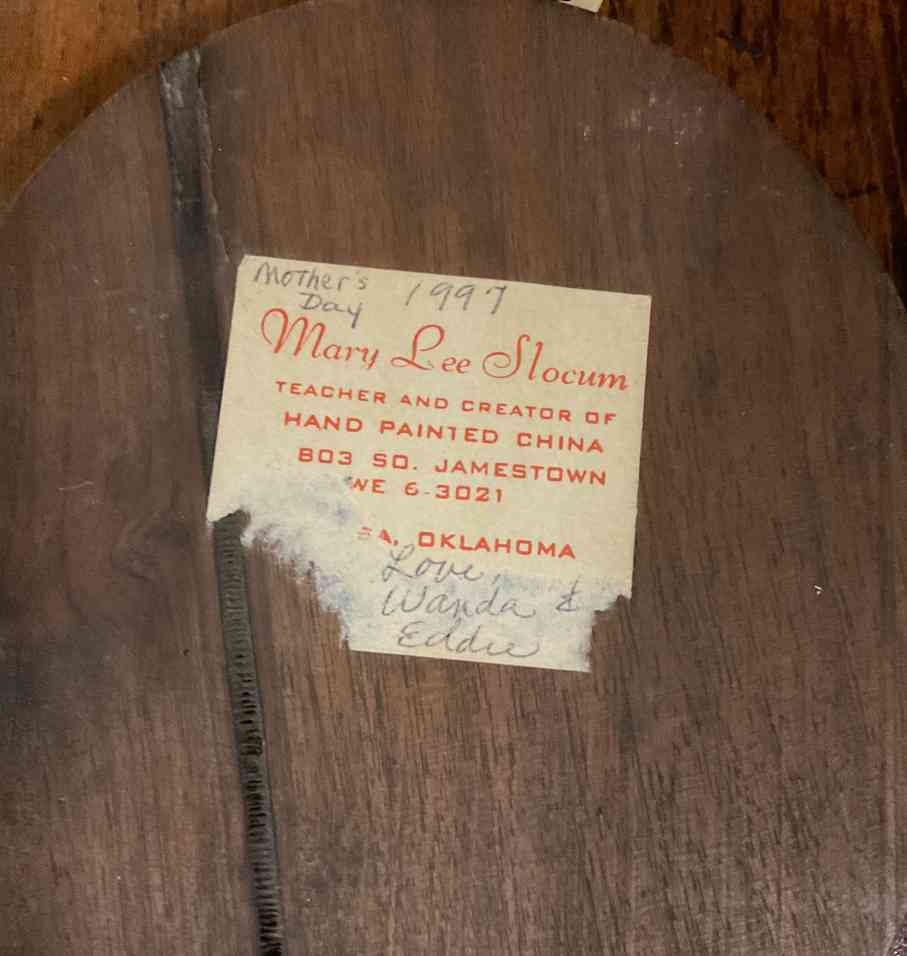 Mother's 1997
Day
Mary Lee Slocum
TEACHER AND CREATOR OF
HAND PAINTED CHINA
803 SO. JAMESTOWN
WE 6-3021
SA, OKLAHOMA
Love,
Wanda &
Eddie